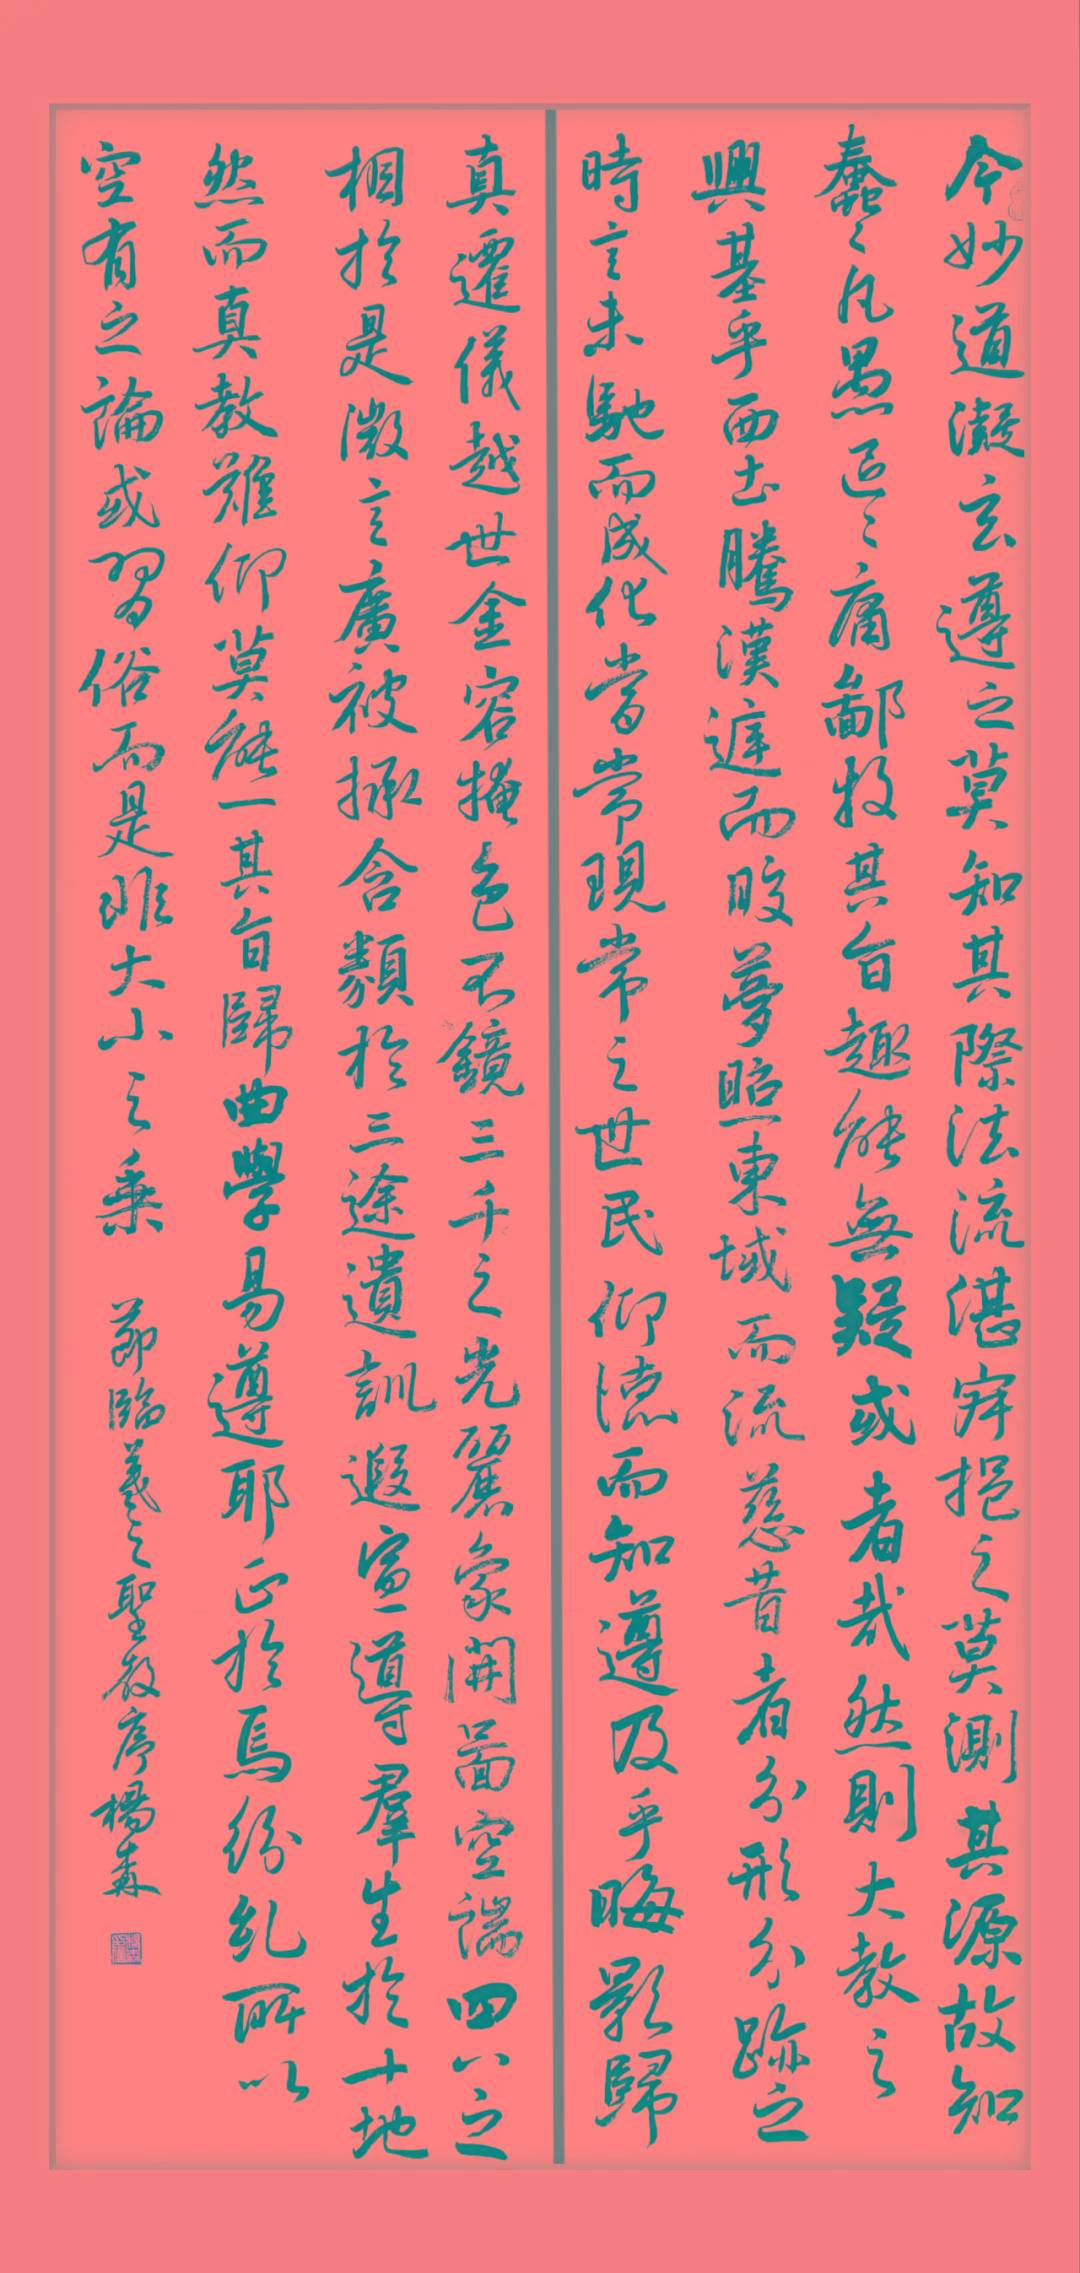 今妙道凝玄遵之莫知其際法流湛寂挹之莫測其源故知
蠢〻凡愚區〻庸鄙投其旨趣能無疑或者哉然則大教之
興基乎西土騰漢庭而皎夢照東域而流慈昔者分形分跡之
時言未馳而成化當常現常之世民仰德而知遵及乎晦影歸
真遷儀越世金容掩色不鏡三千之光麗象開圖空端四八之
相於是微言廣被拯含類於三途遺訓遐宣導羣生於十地
然而真教難仰莫能一其旨歸曲學易遵耶正於焉紛糺所以
空有之論或習俗而是非大小之乘 節臨羲之聖教序楊森